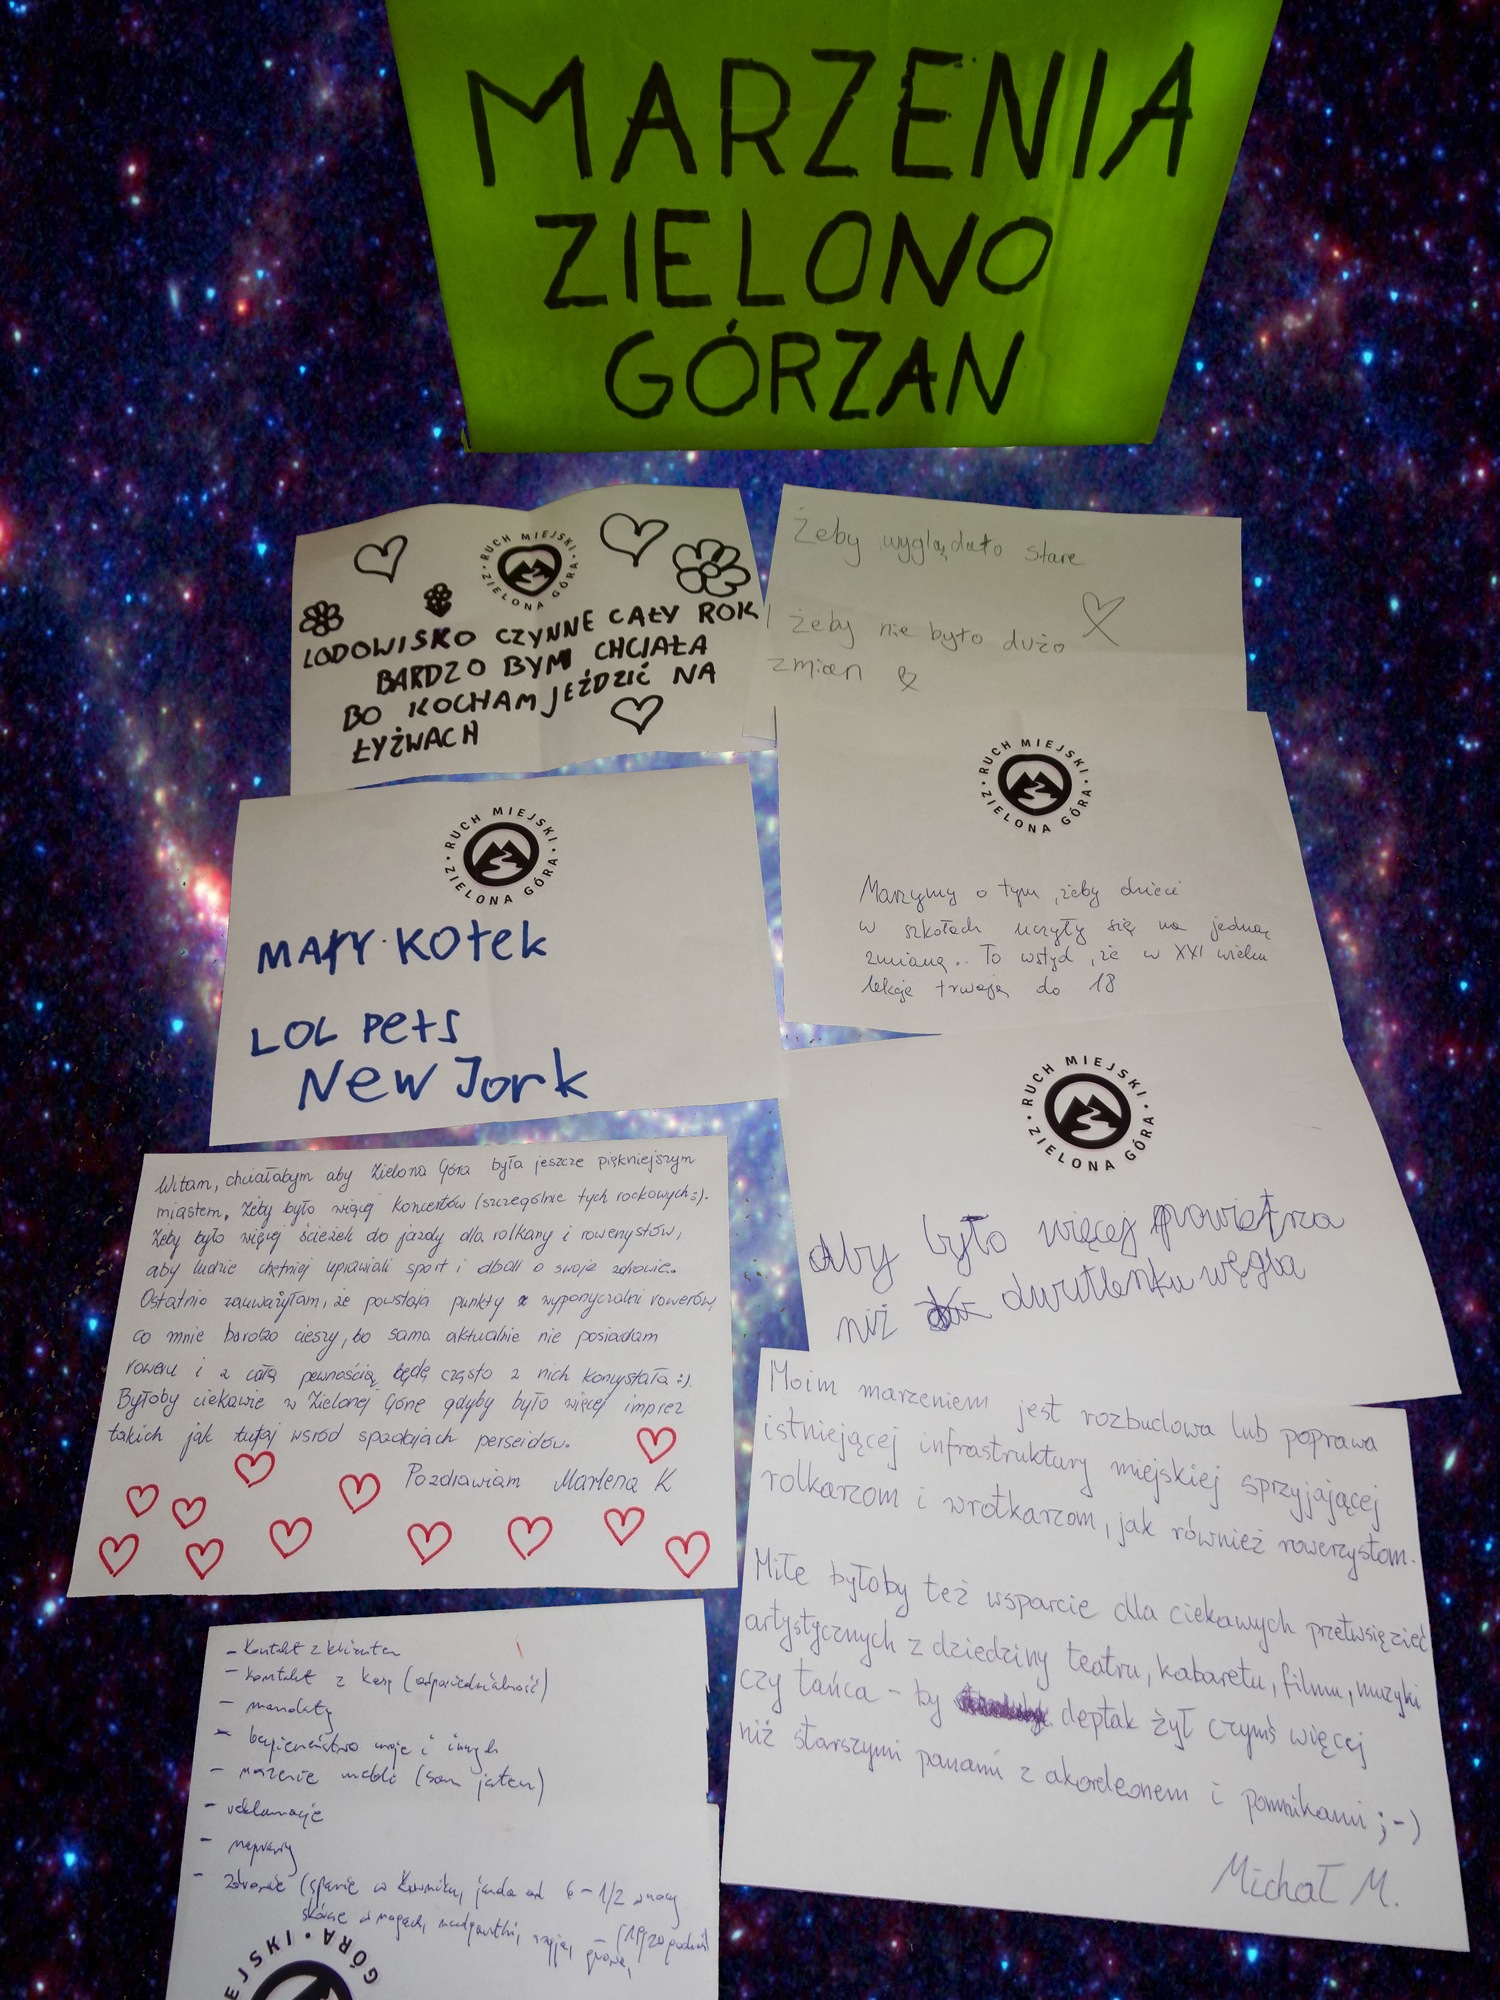 MARZENIA
ZIELONO
GÓRZAN
RUCH MIEJSKI
ZIELONA GÓRA
LODOWISKO CZYNNE CAŁY ROK
BARDZO BYM CHCIAŁA
BO KOCHAM JEŹDZIĆ NA
ŁYŻWACH
Żeby wyglądało stare
żeby nie było dużo
zmian
RUCH MIEJSKI
ZIELONA GÓRA
MAŁY KOteK
LOL Pets
New Jork
RUCH MIEJSKI
ZIELONA GÓRA
Marzymy o tym, żeby dzieci
w szkołach uczyły się na jedną
zmianę.. To wstyd, że w XXI wieku
lekcje trwają do 18
RUCH MIEJSKI
ZIELONA GÓRA
aby było więcej powietrza
niż dwutlenku węgla
Witam, chciałabym aby Zielona Góra była jeszcze piękniejszym
miastem. Żeby było więcej koncertów (szczególnie tych rockowych:).
Żeby było więcej ścieżek do jazdy dla rolkarzy i rowerzystów,
aby ludzie chętniej uprawiali sport i dbali o swoje zdrowie.
Ostatnio zauważyłam, że powstają punkty z wypożyczalni rowerów
co mnie bardzo cieszy, bo sama aktualnie nie posiadam
roweru i z całą pewnością będę często z nich korzystała :).
Byłoby ciekawie w Zielonej Górze gdyby było więcej imprez
takich jak tutaj wśród spadających perseidów.
Pozdrawiam Marlena K
Moim marzeniem jest rozbudowa lub poprawa
istniejącej infrastruktury miejskiej sprzyjającej
rolkarzom i wrotkarzom, jak również rowerzystom.
Miłe byłoby też wsparcie dla ciekawych przetwsięzięć
artystycznych z dziedziny teatru, kabaretu, filmu, muzyki
czy tańca - by deptak żył czymś więcej
niż starszymi panami z akordeonem i pomnikami ;-)
Michał M.
- kontakt z klientem
- kontakt z kasą (odpowiedzialność)
- mandaty
- bezpieczeństwo moje i innych
- noszenie mebli (sam jestem)
- reklamacje
- naprawy
- zdrowie (spanie w , jazda od 6 - 1/2 w nocy
(19/20 godzin)
skórcze w nogach, nadgarstki, szyja, głowa,
RUCH MIEJSKI
GÓRA